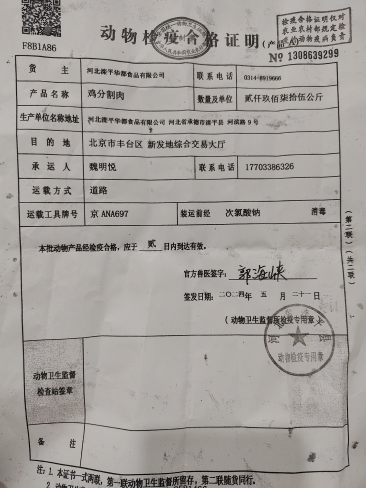 检疫合格证明仅对
F8B1A86
动物检疫合格证明(产品A)
No 1308639299
货 主 河北滦平华都食品有限公司 联系电话 0314-8919666
产品名称 鸡分割肉 数量及单位 贰仟玖佰柒拾伍公斤
生产单位名称地址 河北滦平华都食品有限公司 河北省承德市滦平县
目的地 北京市丰台区 新发地综合交易大厅
承运人 魏明悦 联系电话 17703386326
运载方式 道路
运载工具牌号 京 ANA697 装运前经 次氯酸钠 消毒
本批动物产品经检疫合格，应于 贰 日内到达有效。
官方兽医签字：郭海峡
签发日期：二〇二四年 五 月 二十一日
(动物卫生监督所检疫专用章)
动物检疫专用章
动物卫生监督
检查站签章
备 注
(第二联)(共二联)
注：1．本证书一式两联，第一联动物卫生监督所留存，第二联随货同行。